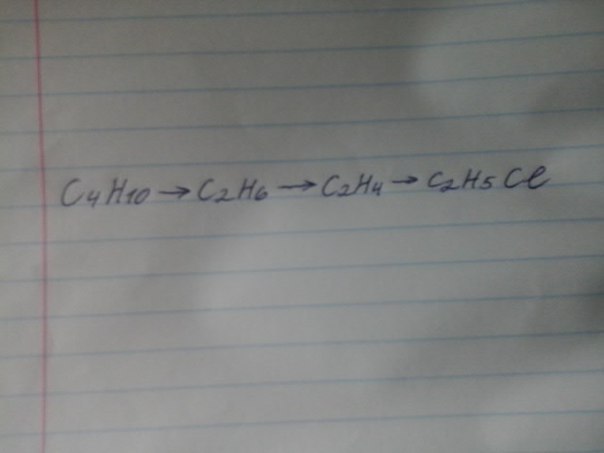 C₄H₁₀ → C₂H₆ → C₂H₄ → C₂H₅Cl